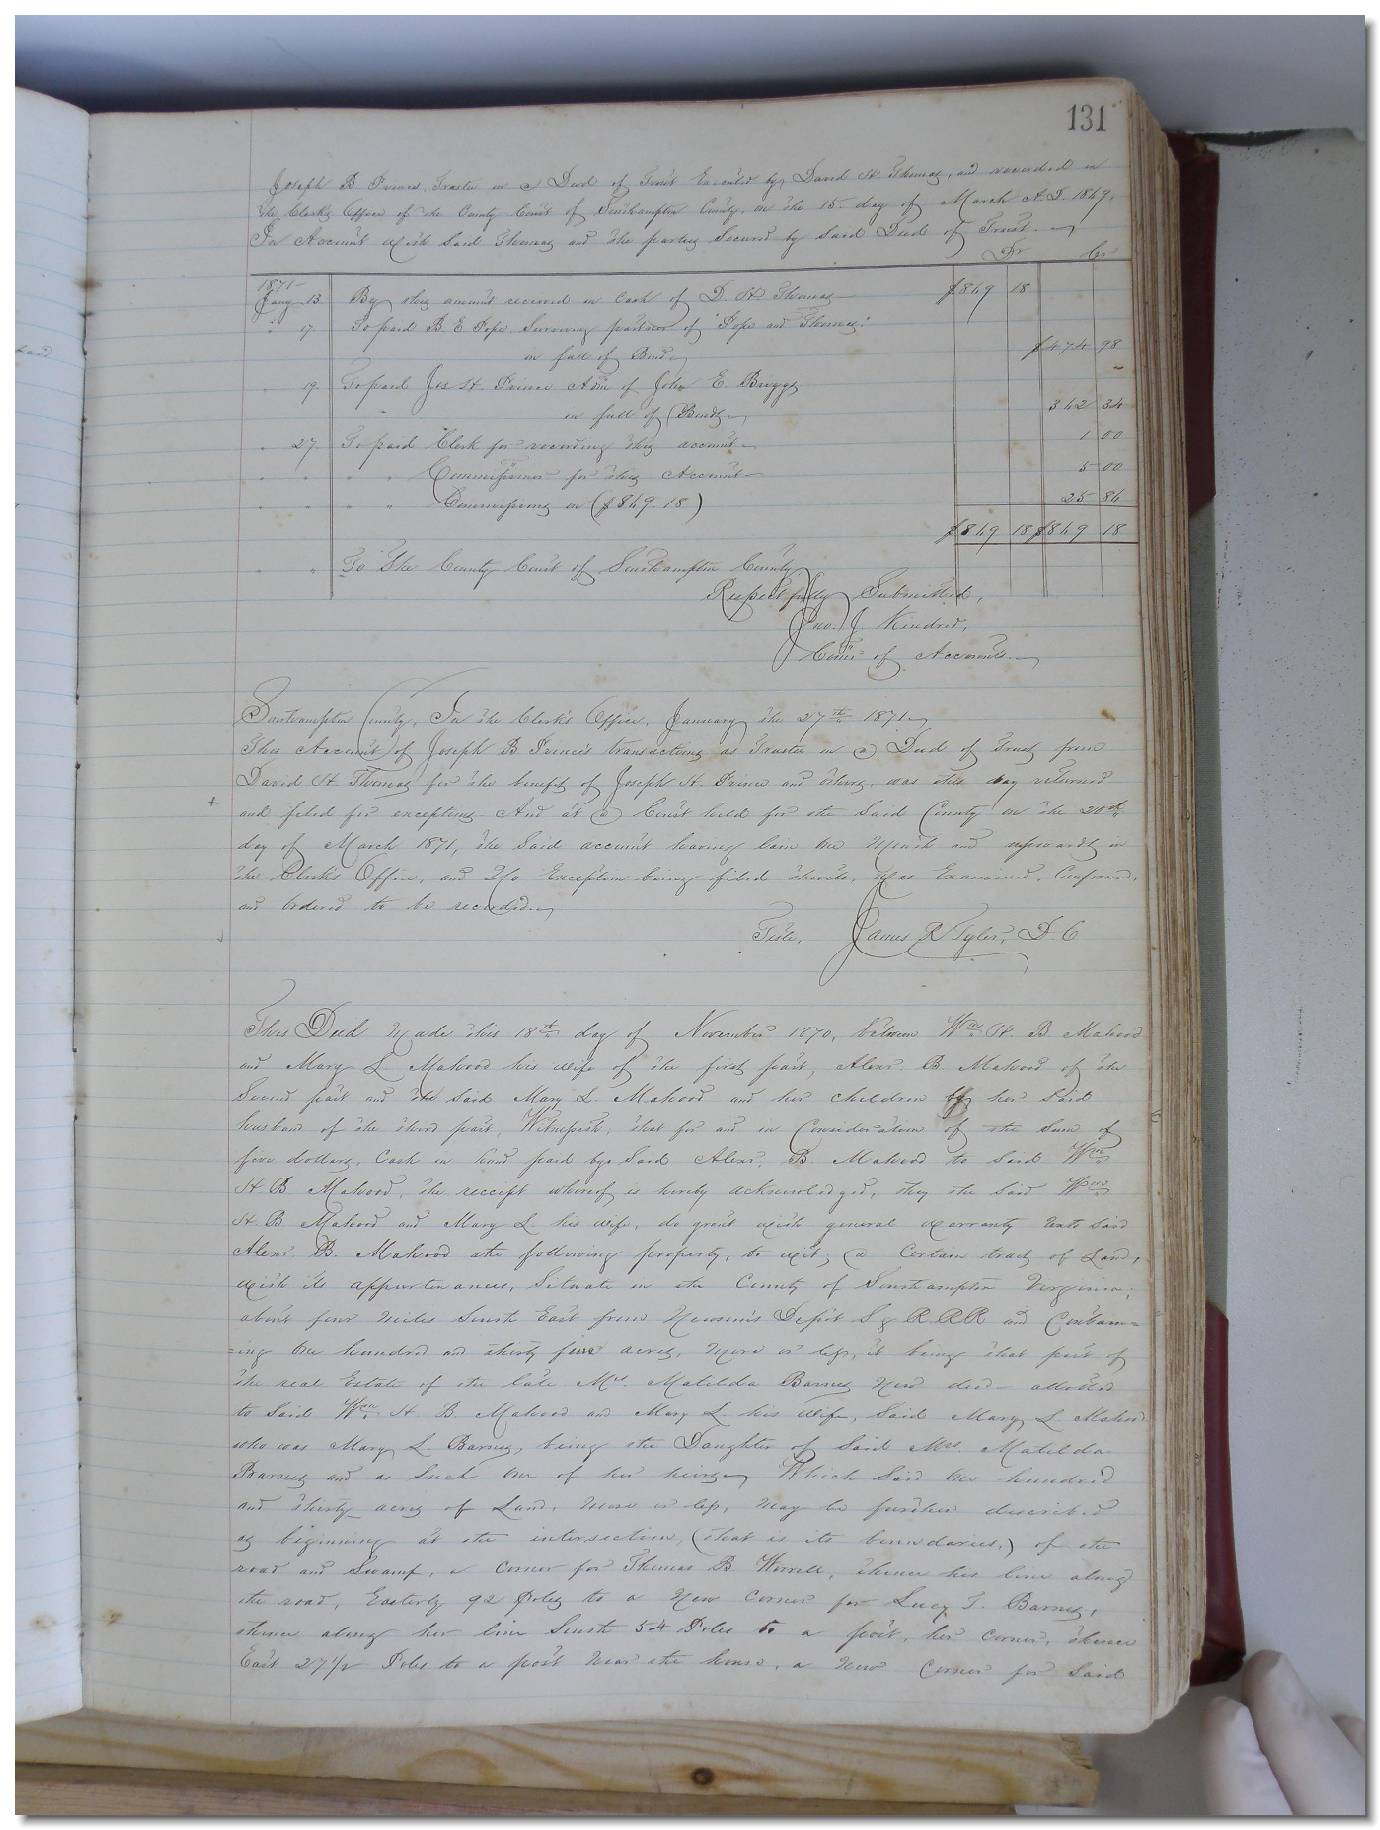 131
Joseph B Prince, Trustee in a Deed of Trust Executed by David H. Thomas, and recorded in
the Clerks Office of the County Court of Southampton County, on the 15 day of March A.D. 1869.
In Account with Said Thomas and the parties Secured by Said Deed of Trust.
Dr Cr
1871
Jany 13 By this amount received in Cash of D. H Thomas $849 18
" 17 To paid B. E. Pope Surviving partner of "Pope and Thomas"
in full of Bond $474 98
" 19 To paid Jos H. Prince Adm of John E. Briggs
in full of Bonds 342 34
" 27 To paid Clerk for recording this account 1 00
" " " " Commissioner for this Account 5 00
" " " " Commissions on ($849 18) 25 86
$849 18 $849 18
" " To The County Court of Southampton County
Respectfully Submitted,
Jno. J. Kindred,
Com of Accounts.
Southampton County, In the Clerk's Office, January the 27th 1871
This Account of Joseph B Prince's transactions as Trustee in a Deed of Trust from
David H Thomas for the benefit of Joseph H. Prince and others, was this day returned
and filed for exceptions And at a Court held for the Said County on the 20th
day of March 1871, the Said account having lain one Month and upwards in
the Clerk's Office, and No Exception being filed thereto, was Examined, Confirmed,
and Ordered to be recorded.
Teste, James R Tyler, D. C
This Deed Made this 18th day of November 1870, between Wm H. B Mahood
and Mary L Mahood his wife of the first part, Alexr. B. Mahood of the
Second part and the Said Mary L. Mahood and her children by her Said
husband of the third part, Witnesseth, that for and in Consideration of the Sum of
five dollars, Cash in hand paid by Said Alexr. B. Mahood to Said Wm
H B Mahood, the receipt whereof is hereby acknowledged, they the Said Wm
H. B Mahood and Mary L his wife, do grant with general warranty unto Said
Alexr. B. Mahood the following property, to wit, a Certain tract of Land,
with its appurtenances, Situate in the County of Southampton Virginia,
about four Miles South East from Newsom's Depot S & R. R. R and Contain=
=ing One hundred and thirty four acres, More or less, it being that part of
the real Estate of the late Mrs. Matilda Barnes Now decd allotted
to Said Wm H B Mahood and Mary L his wife, Said Mary L Mahood
who was Mary L. Barnes, being the Daughter of Said Mrs. Matilda
Barnes and as Such One of her heirs, Which Said One hundred
and thirty acres of Land, More or less, May be further described
as beginning at the intersection, (that is its boundaries,) of the
road and Swamp, a corner for Thomas B Worrell, thence his line along
the road, Easterly 92 Poles to a New corner for Lucy T. Barnes,
thence along her line South 54 Poles to a post, her corner, thence
East 27½ Poles to a post near the house, a New Corner for Said